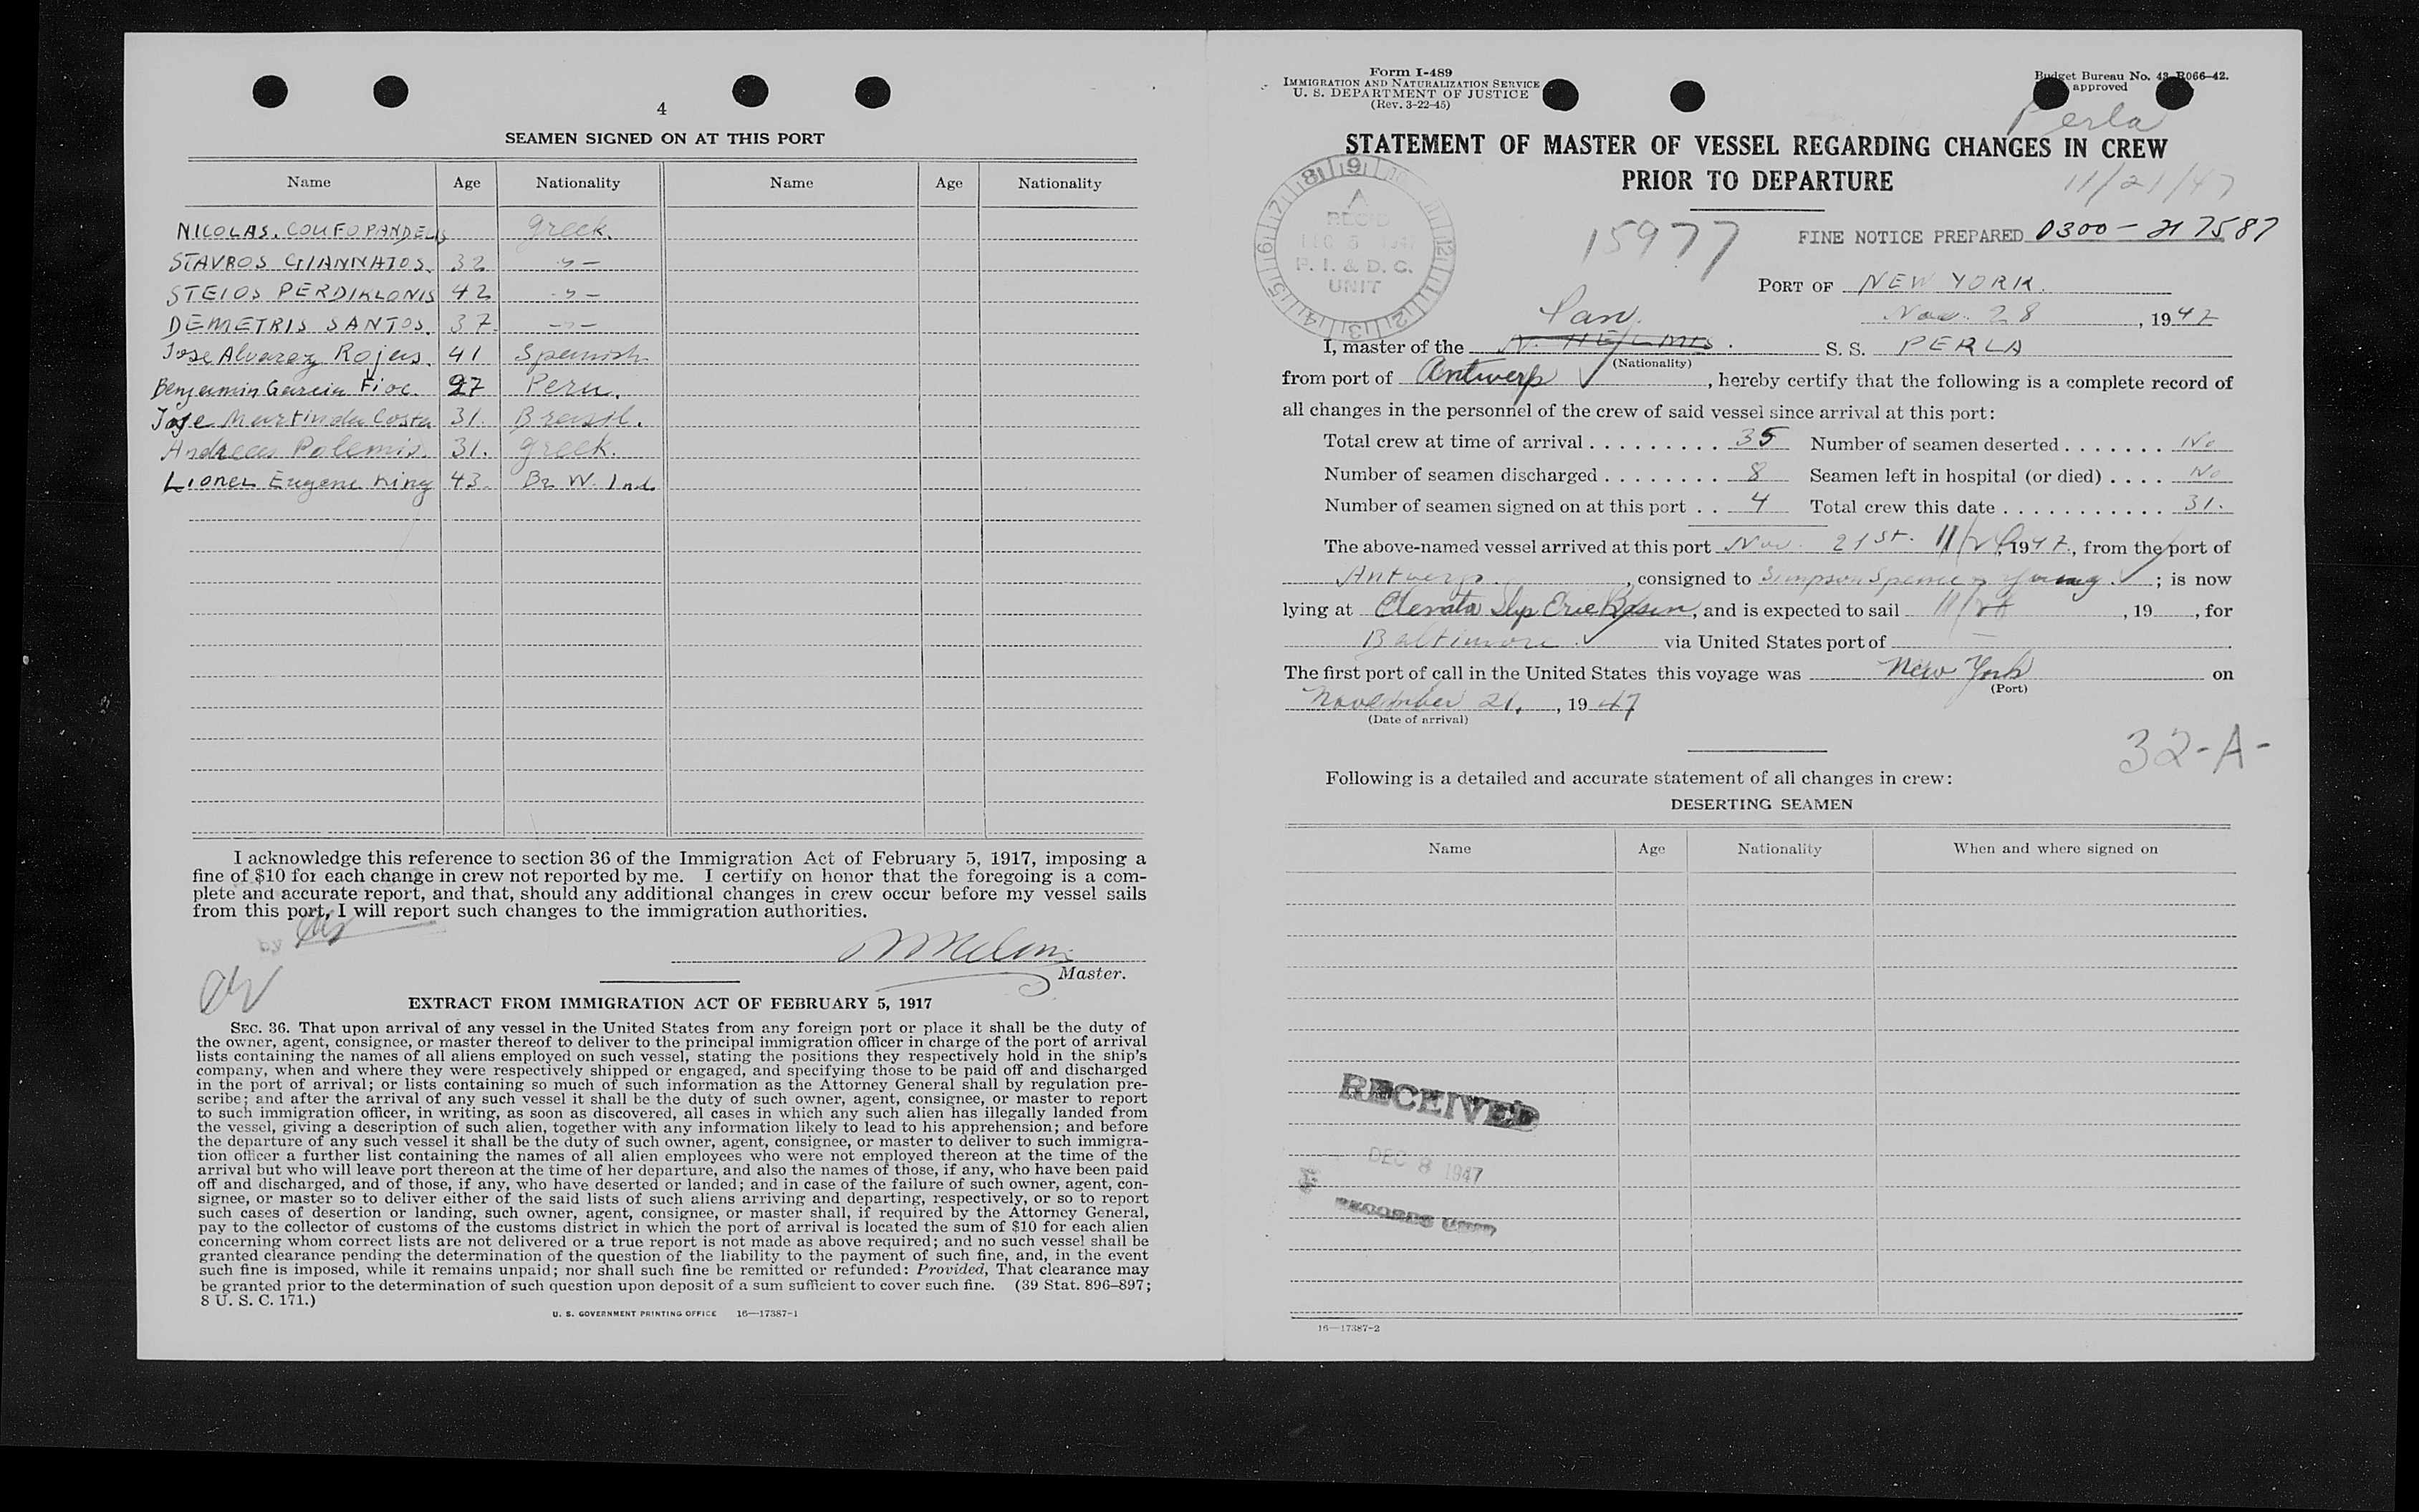 4
SEAMEN SIGNED ON AT THIS PORT
Name Age Nationality Name Age Nationality
NICOLAS. COUFOPANDELIS Greek.
STAVROS GIANNATOS. 32 -"-
STEIOS PERDIKLONIS 42 -"-
DEMETRIS SANTOS. 37. -"-
Jose Alvarez Rojas. 41. Spanish
Benjamin Garcia Fioc. 27 Peru.
Jose Martin da Costa 31. Brasil.
Andreas Polemis. 31. Greek.
Lionel Eugene King 43. Br W. Ind.
I acknowledge this reference to section 36 of the Immigration Act of February 5, 1917, imposing a
fine of $10 for each change in crew not reported by me. I certify on honor that the foregoing is a com-
plete and accurate report, and that, should any additional changes in crew occur before my vessel sails
from this port, I will report such changes to the immigration authorities.
by
Master.
EXTRACT FROM IMMIGRATION ACT OF FEBRUARY 5, 1917
SEC. 36. That upon arrival of any vessel in the United States from any foreign port or place it shall be the duty of
the owner, agent, consignee, or master thereof to deliver to the principal immigration officer in charge of the port of arrival
lists containing the names of all aliens employed on such vessel, stating the positions they respectively hold in the ship's
company, when and where they were respectively shipped or engaged, and specifying those to be paid off and discharged
in the port of arrival; or lists containing so much of such information as the Attorney General shall by regulation pre-
scribe; and after the arrival of any such vessel it shall be the duty of such owner, agent, consignee, or master to report
to such immigration officer, in writing, as soon as discovered, all cases in which any such alien has illegally landed from
the vessel, giving a description of such alien, together with any information likely to lead to his apprehension; and before
the departure of any such vessel it shall be the duty of such owner, agent, consignee, or master to deliver to such immigra-
tion officer a further list containing the names of all alien employees who were not employed thereon at the time of the
arrival but who will leave port thereon at the time of her departure, and also the names of those, if any, who have been paid
off and discharged, and of those, if any, who have deserted or landed; and in case of the failure of such owner, agent, con-
signee, or master so to deliver either of the said lists of such aliens arriving and departing, respectively, or so to report
such cases of desertion or landing, such owner, agent, consignee, or master shall, if required by the Attorney General,
pay to the collector of customs of the customs district in which the port of arrival is located the sum of $10 for each alien
concerning whom correct lists are not delivered or a true report is not made as above required; and no such vessel shall be
granted clearance pending the determination of the question of the liability to the payment of such fine, and, in the event
such fine is imposed, while it remains unpaid; nor shall such fine be remitted or refunded: Provided, That clearance may
be granted prior to the determination of such question upon deposit of a sum sufficient to cover such fine. (39 Stat. 896–897;
8 U. S. C. 171.)
U. S. GOVERNMENT PRINTING OFFICE 16—17387-1
Form I-489
IMMIGRATION AND NATURALIZATION SERVICE
U. S. DEPARTMENT OF JUSTICE
(Rev. 3-22-45)
Budget Bureau No. 43-R066-42.
approved
Perla
STATEMENT OF MASTER OF VESSEL REGARDING CHANGES IN CREW
PRIOR TO DEPARTURE
11/21/47
REC'D
DEC 5 1947
P. I. & D. C.
UNIT
15977
FINE NOTICE PREPARED 0300 - 217587
PORT OF NEW YORK.
Nov. 28, 1947
Pan.
I, master of the S. S. PERLA
(Nationality)
from port of Antwerp, hereby certify that the following is a complete record of
all changes in the personnel of the crew of said vessel since arrival at this port:
Total crew at time of arrival 35 Number of seamen deserted No
Number of seamen discharged 8 Seamen left in hospital (or died) No
Number of seamen signed on at this port 4 Total crew this date 31.
The above-named vessel arrived at this port Nov. 21st. 11/21, 1947, from the port of
Antwerp., consigned to Simpson Spence & Young; is now
lying at Clements Slip Erie Basin, and is expected to sail 11/28, 19, for
Baltimore via United States port of —
The first port of call in the United States this voyage was New York on
(Port)
November 21, 1947
(Date of arrival)
32-A-
Following is a detailed and accurate statement of all changes in crew:
DESERTING SEAMEN
Name Age Nationality When and where signed on
RECEIVED
DEC 8 1947
RECORDS UNIT
16—17387-2